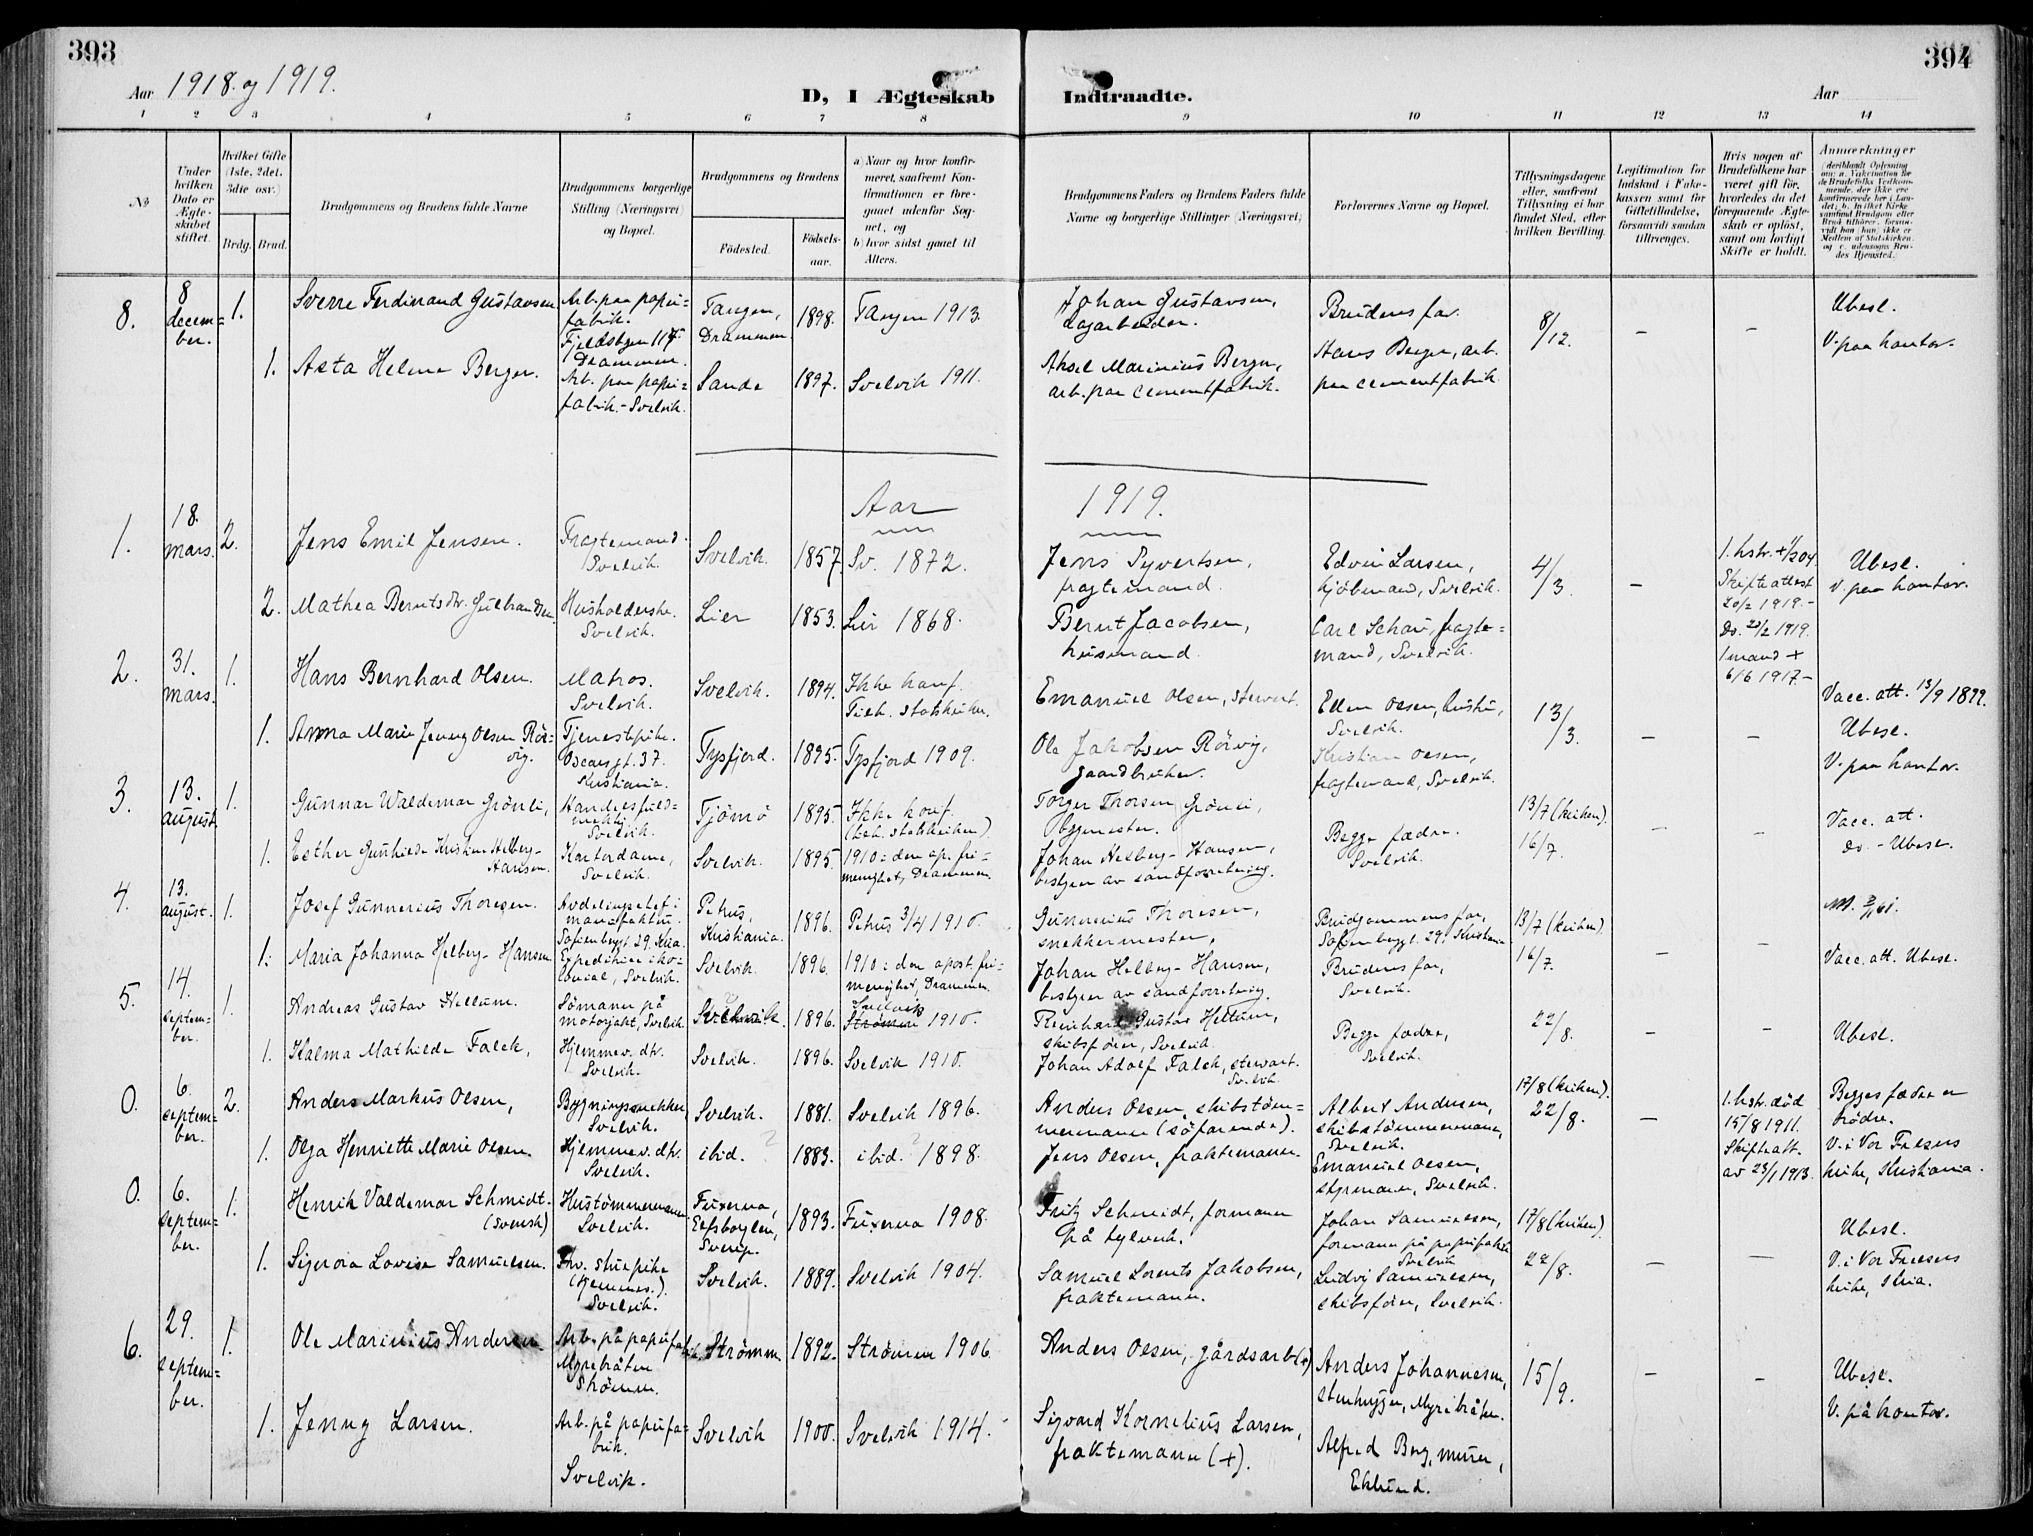 393
Aar 1918. og 1919.
D, I Ægteskab Indtraadte.
Aar
394
1 2 3 4 5 6 7 8 9 10 11 12 13 14
No
Under hvilken Dato er Ægteskabet stiftet.
Hvilket Gifte (1ste, 2det, 3die osv.)
Brdg. Brud.
Brudgommens og Brudens fulde Navne
Brudgommens borgerlige Stilling (Næringsvei) og Bopæl.
Brudgommens og Brudens
Fødested.
Fødselsaar.
a) Naar og hvor konfirmeret, saafremt Konfirmationen er foregaaet udenfor Sognet, og
b) hvor sidst gaaet til Alters.
Brudgommens Faders og Brudens Faders fulde Navne og borgerlige Stillinger (Næringsvei)
Forlovernes Navne og Bopæl.
Tillysningsdagene eller, saafremt Tillysning ei har fundet Sted, efter hvilken Bevilling.
Legitimation for Indskud i Enkekassen samt for Giftetilladelse, forsaavidt saadan tiltrænges.
Hvis nogen af Brudefolkene har været gift før, hvorledes da det foregaaende Ægteskab er opløst, samt om lovligt Skifte er holdt.
Anmærkninger
8. 8 december. 1. Sverre Ferdinand Gustavsen Arb. paa papirfabrik. Fjeldsbgen 117 Drammen. Tangen, Drammen. 1898. Tangen 1913. Johan Gustavsen, lagarbeider. Brudens far 8/12. - - Ubesl.
1. Asta Helene Berger. Arb. paa papirfabrik.- Svelvik. Sande 1897. Svelvik 1911. Aksel Marinius Berger, arb. paa cementfabrik. Hans Berger, arb. paa cementfabrik. V. paa kontor.
Aar 1919.
1. 18. mars. 2. Jens Emil Jensen. Fragtemand. Svelvik. Svelvik. 1857. Sv. 1872. Jens Syvertsen, fragtemand. Edvin Larsen, kjøbmand, Svelvik. 4/3. - 1. hstr. + 1/3 04 Skifteattest 20/2 1919.- Ubesl. V. paa kontor.
2. Mathea Berntsdtr. Gulbrandsen Husholderske. Svelvik. Lier 1853. Lier 1868. Bernt Jacobsen, husmand. Carl Schau, fragtemand, Svelvik. Do. 20/2 1919. 1 mand + 6/6 1917.-
2. 31. mars. 1. Hans Bernhard Olsen. Matros. Svelvik. Svelvik. 1894. Ikke konf. Tilh. statskirken. Emanuel Olsen, stewart. Ellen Olsen, hustru, Svelvik. 13/3. - - Vacc. att. 13/9 1899. Ubesl.
1. Anna Marie Jenny Olsen Rörvig. Tjenestepike. Oscarsgt. 37. Kristiania. Tysfjord. 1895. Tysfjord 1909. Ole Jakobsen Rörvig, gaardbruker. Kristian Olsen, fragtemand, Svelvik. V. paa kontor.
3. 13. august 1. Gunnar Waldemar Grönli, Svelvik. Tjömö 1895. Ikke konf. (tilh. statskirken). Torger Thorsen Grönli, byggmester. Begge fædre. Svelvik. 13/7 (kirken). 16/7. - - Vacc. att.
1. Esther Gunhilde Kristine Helberg-Hansen. Kontordame, Svelvik. Svelvik. 1895 1910 i den ap. frimenighet, Drammen. Johan Helberg-Hansen, bestyrer av sandforretning. do. - Ubesl.
4. 13. august. 1. Josef Gunnerius Thoresen. Avdelingschef i manufaktur. Sofienberggt 29, Kria. Petrus, Kristiania. 1896. Petrus 3/4 1910. Gunnerius Thoresen, snekkermester, Brudgommens far, Sofienberggt. 29, Kristiania 13/7 (kirken). 16/7. - -
1. Maria Johanna Helberg-Hansen Expeditrice i kolonial, Svelvik. Svelvik. 1896. 1910 i den apost. frimenighet, Drammen. Johan Helberg-Hansen, bestyrer av sandforretning. Brudens far, Svelvik. Vacc. att. Ubesl.
5. 14. september. 1. Andreas Gustav Hellum. Sömann på motorjakt, Svelvik. Svelvik 1896. Svelvik Strömm 1910. Reinhard Gustav Hellum, skibsförer, Svelvik. Begge fædre, Svelvik. 22/8. - - Ubesl.
1. Halma Mathilde Falck, Hjemmev. dtr. Svelvik. Svelvik. 1896. Svelvik 1910. Johan Adolf Falck, stewart. Svelvik.
0. 6. september. 2. Anders Markus Olsen, Bygningssnekker, Svelvik. Svelvik. 1881. Svelvik 1896. Anders Olsen, skibstömmermann (söfarende). Albert Andersen, skibstömmermann, Svelvik. 17/8 (kirken). 22/8. - 1. hstr. död 15/8 1911. Skifteatt. av 23/1 1913. Begges fædre er brödre.
1. Olga Henriette Marie Olsen. Hjemmev. dtr. Svelvik. ibid. ? 1883. ibid. ? 1898. Jens Olsen, fraktemann. Emanuel Olsen, styrmann, Svelvik. V. i Vor Frelsers kirke, Kristiania.
0. 6. september. 1. Henrik Valdemar Schmidt. (svensk) Hustömmermann Svelvik. Fuxerna, Elfsborglen, Sverig. 1893. Fuxerna 1908. Fritz Schmidt, formann på tylverk. Johan Samuelsen, formann på papirfabrik Svelvik 17/8 (kirken). 22/8. - - Ubesl.
1. Signora Lovise Samuelsen. Fhv. stuepike (hjemmev.). Svelvik. Svelvik. 1889. Svelvik 1904. Samuel Lorents Jakobsen, fraktemann. Ludvig Samuelsen, skibsförer, Svelvik. V. i Vor Frelsers kirke, Kria.
6. 29. september. 1. Ole Marinius Andersen Arb. på papirfabrik Myrebråten Strömm. Strömm. 1892. Strömm 1906. Anders Olsen, gårdsarb (+) Anders Johannesen, stenhugger, Myrebråten. 15/9. - - Ubesl.
1. Jenny Larsen. Arb. på papirfabrik. Svelvik. Svelvik 1900. Svelvik 1914. Sigvard Kornelius Larsen, fraktemann (+). Alfred Berg, murer, Eklund. V. på kontor.